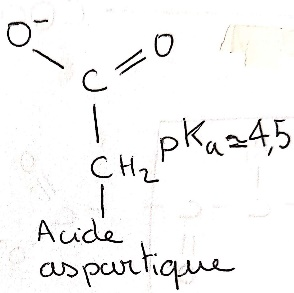 O⁻
O
C
CH₂ pKa ≃ 4,5
Acide
aspartique